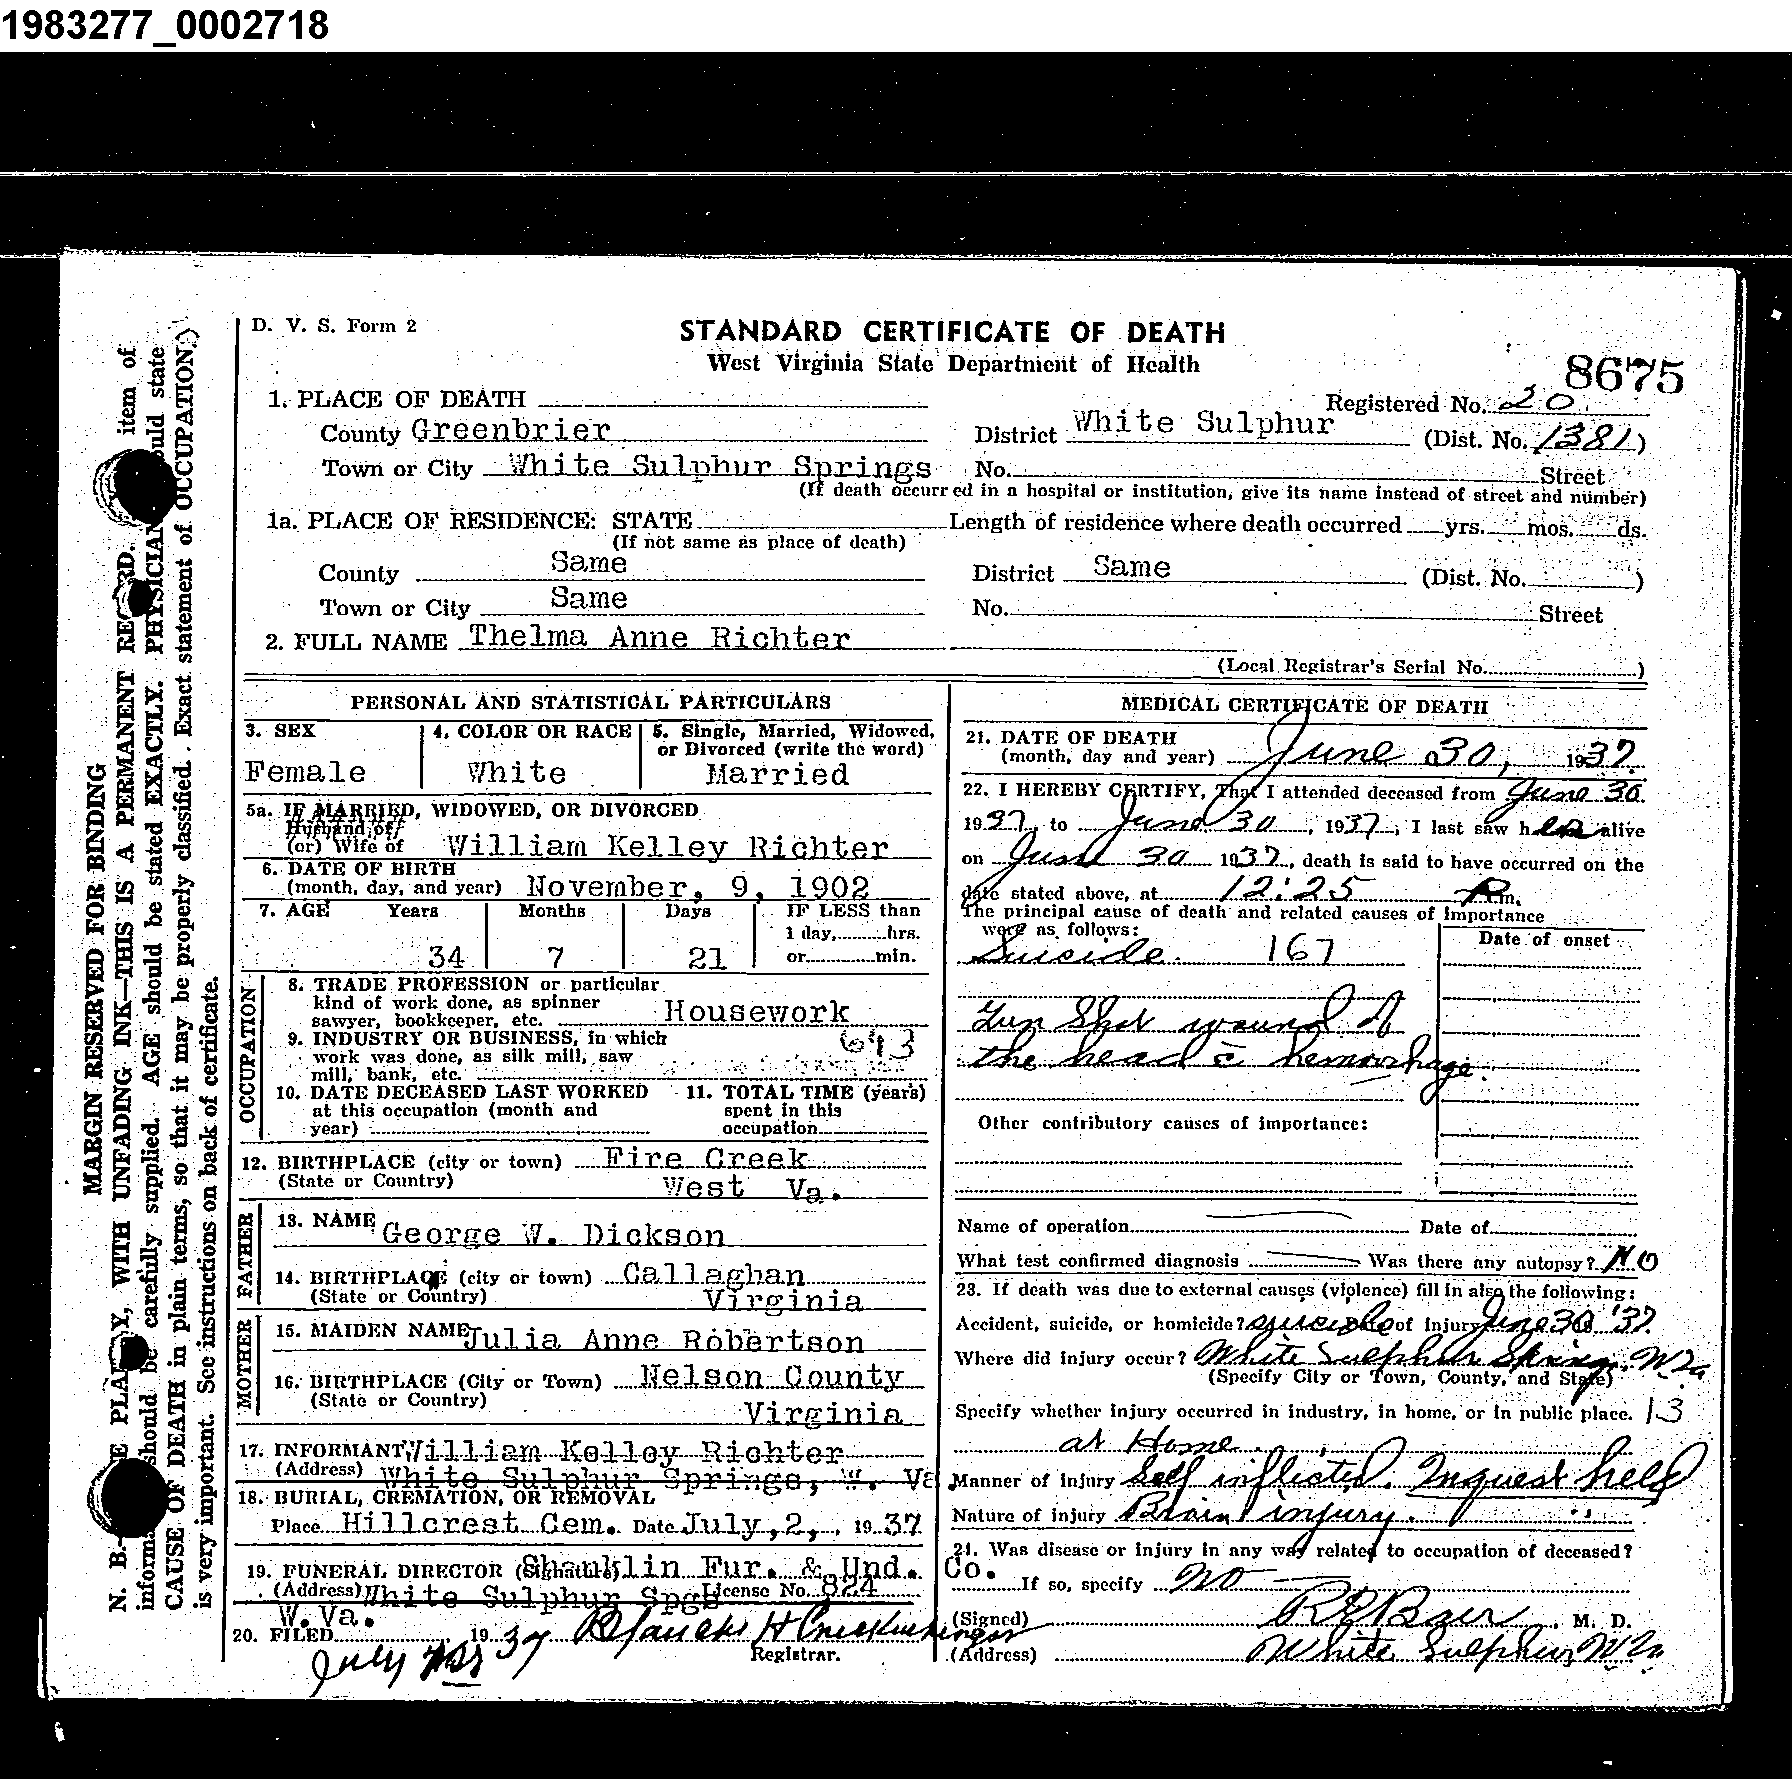 1983277_0002718
D. V. S. Form 2
STANDARD CERTIFICATE OF DEATH
West Virginia State Department of Health
8675
1. PLACE OF DEATH
Registered No. 20
County Greenbrier
District White Sulphur (Dist. No. 1381)
Town or City White Sulphur Springs No. Street
(If death occurred in a hospital or institution, give its name instead of street and number)
1a. PLACE OF RESIDENCE: STATE Length of residence where death occurred yrs. mos. ds.
(If not same as place of death)
County Same District Same (Dist. No. )
Town or City Same No. Street
2. FULL NAME Thelma Anne Richter
(Local Registrar's Serial No. )
PERSONAL AND STATISTICAL PARTICULARS
3. SEX
Female
4. COLOR OR RACE
White
5. Single, Married, Widowed,
or Divorced (write the word)
Married
5a. IF MARRIED, WIDOWED, OR DIVORCED
Husband of
(or) Wife of William Kelley Richter
6. DATE OF BIRTH
(month, day, and year) November, 9, 1902
7. AGE Years Months Days IF LESS than
1 day, hrs.
34 7 21 or min.
OCCUPATION
8. TRADE PROFESSION or particular
kind of work done, as spinner
sawyer, bookkeeper, etc. Housework
9. INDUSTRY OR BUSINESS, in which 693
work was done, as silk mill, saw
mill, bank, etc.
10. DATE DECEASED LAST WORKED
at this occupation (month and
year)
11. TOTAL TIME (years)
spent in this
occupation
12. BIRTHPLACE (city or town) Fire Creek
(State or Country) West Va.
FATHER
13. NAME George W. Dickson
14. BIRTHPLACE (city or town) Callaghan
(State or Country) Virginia
MOTHER
15. MAIDEN NAME Julia Anne Robertson
16. BIRTHPLACE (City or Town) Nelson County
(State or Country) Virginia
17. INFORMANT William Kelley Richter
(Address) White Sulphur Springs, W. Va.
18. BURIAL, CREMATION, OR REMOVAL
Place Hillcrest Cem. Date July, 2, , 1937
19. FUNERAL DIRECTOR (Signature) Shanklin Fur. & Und. Co.
(Address) White Sulphur Spgs License No. 824
W. Va.
20. FILED July 1937
Registrar.
MEDICAL CERTIFICATE OF DEATH
21. DATE OF DEATH
(month, day and year) June 30, 1937
22. I HEREBY CERTIFY, That I attended deceased from June 30
1937, to June 30, 1937, I last saw her alive
on June 30 1937, death is said to have occurred on the
date stated above, at 12:25 P.m.
The principal cause of death and related causes of importance
were as follows:
Date of onset
Suicide 167
Gun Shot wound of
the head c̄ hemorrhage.
Other contributory causes of importance:
Name of operation Date of
What test confirmed diagnosis Was there any autopsy? NO
23. If death was due to external causes (violence) fill in also the following:
Accident, suicide, or homicide? suicide Date of injury June 30 '37
Where did injury occur? White Sulphur Springs W Va
(Specify City or Town, County, and State)
Specify whether injury occurred in industry, in home, or in public place. 13
at Home.
Manner of injury Self inflicted. Inquest held
Nature of injury Brain injury.
24. Was disease or injury in any way related to occupation of deceased?
If so, specify no
(Signed) R E Baer M. D.
(Address) White Sulphur, W Va
MARGIN RESERVED FOR BINDING
N. B.—WRITE PLAINLY, WITH UNFADING INK—THIS IS A PERMANENT RECORD. item of
information should be carefully supplied. AGE should be stated EXACTLY. PHYSICIAN should state
CAUSE OF DEATH in plain terms, so that it may be properly classified. Exact statement of OCCUPATION
is very important. See instructions on back of certificate.